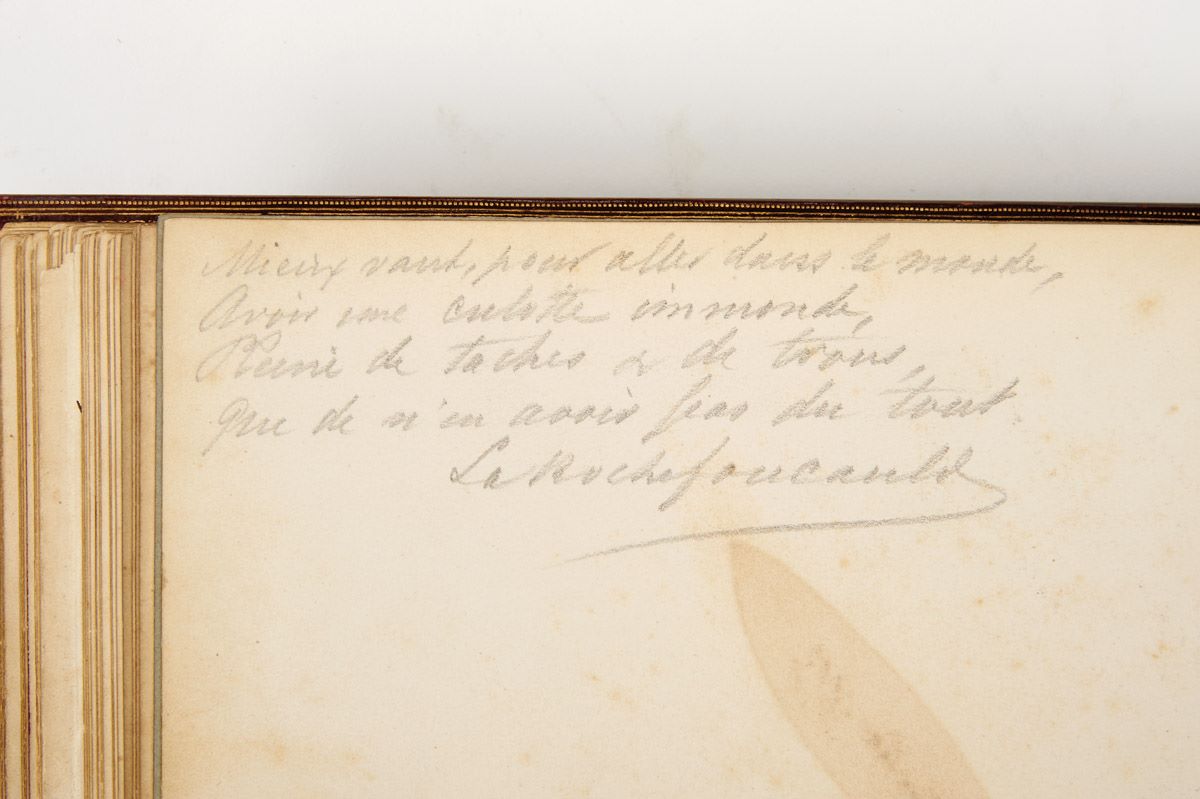 Mieux vaut, pour aller dans le monde,
Avoir une culotte immonde,
Pleine de taches & de trous,
Que de n'en avoir pas du tout
LaRochefoucauld